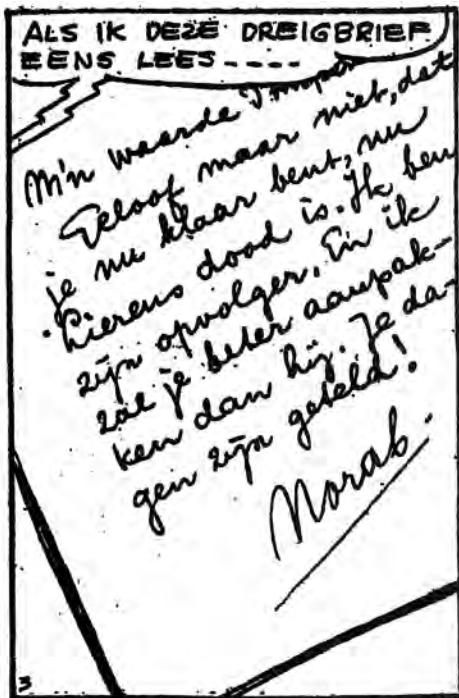 ALS IK DEZE DREIGBRIEF
EENS LEES ----
M'n waarde
Geloof maar niet, dat
je nu klaar bent, nu
Lierens dood is. Ik ben
zijn opvolger. En ik
zal je beter aanpak-
ken dan hij. Je da-
gen zijn geteld!
Norab.
3